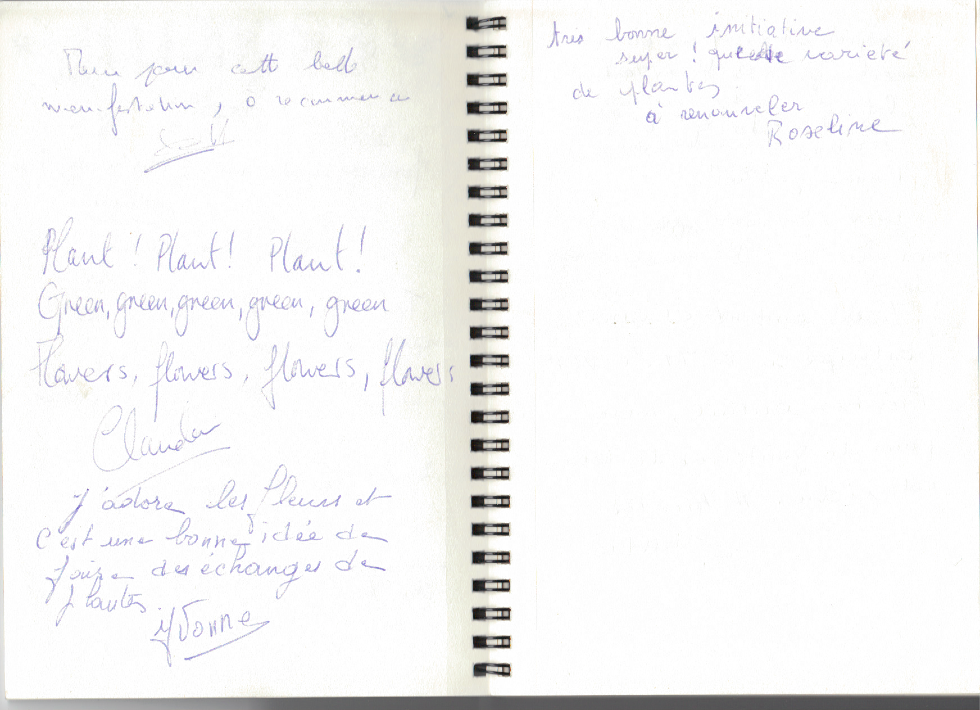 Merci pour cette belle
manifestation, à recommencer
Plant ! Plant ! Plant !
Green, green, green, green, green
Flowers, flowers, flowers, flowers
J'adore les fleurs et
c'est une bonne idée de
faire des échanges de
plantes.
Yvonne
très bonne initiative
super ! quelle varieté
de plantes
à renouveler
Roseline